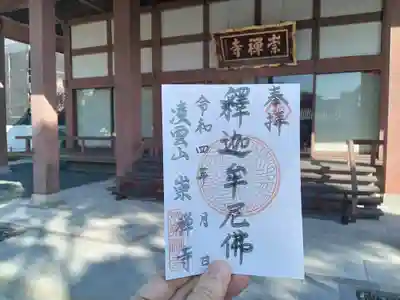 崇禪寺
奉拝
釋迦牟尼佛
令和四年 月 日
凌雲山 崇禅寺